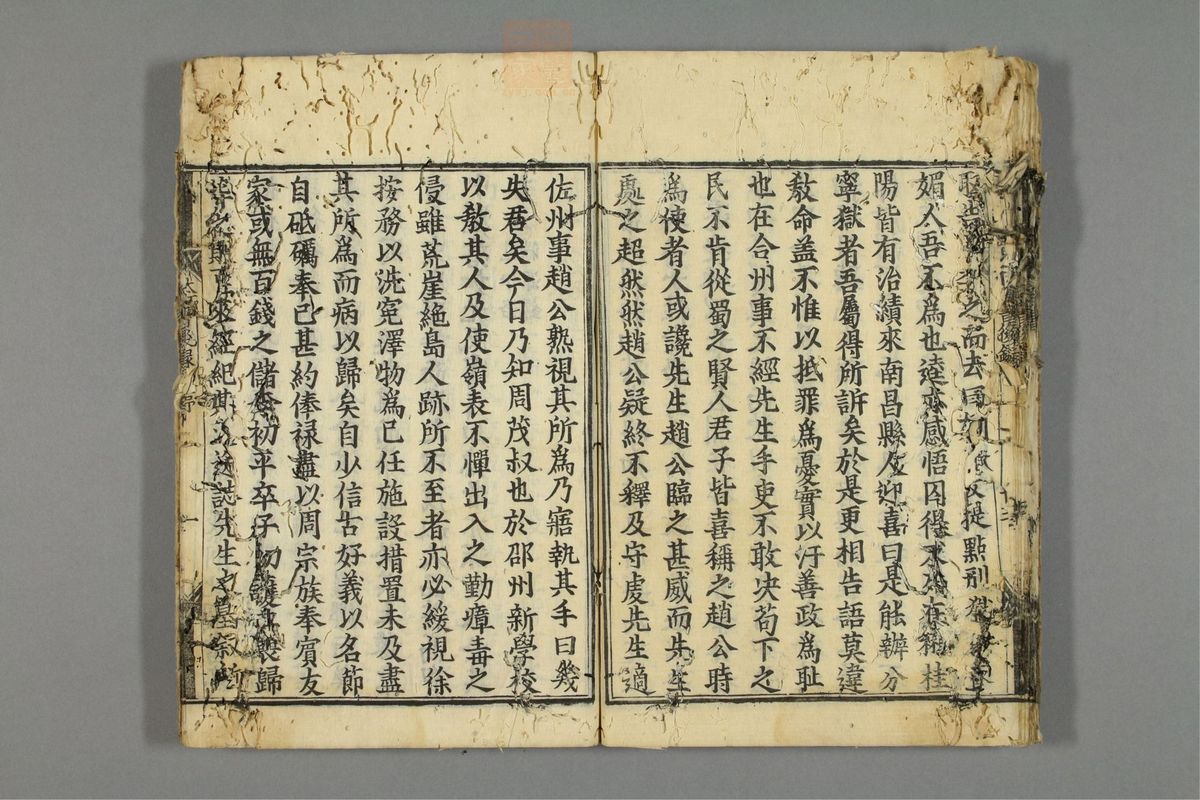 之而去
媚人吾不爲也逵亦感悟囚得不死在郴桂
陽皆有治績來南昌縣人迎喜曰是能辦分
寧獄者吾屬得所訴矣於是更相告語莫違
敎命盖不惟以抵罪爲憂實以汙善政爲耻
也在合州事不經先生手吏不敢决苟下之
民不肯從蜀之賢人君子皆喜稱之趙公時
爲使者人或讒先生趙公臨之甚威而先生
處之超然然趙公疑終不釋及守虔先生適
佐州事趙公熟視其所爲乃寤執其手曰幾
失君矣今日乃知周茂叔也於邵州新學校
以敎其人及使嶺表不憚出入之勤瘴毒之
侵雖荒崖絶島人跡所不至者亦必緩視徐
按務以洗寃澤物爲己任施設措置未及盡
其所爲而病以歸矣自少信古好義以名節
自砥礪奉己甚約俸禄盡以周宗族奉賔友
家或無百錢之儲李初平卒子幼護其喪歸
來經紀其 先生之墓